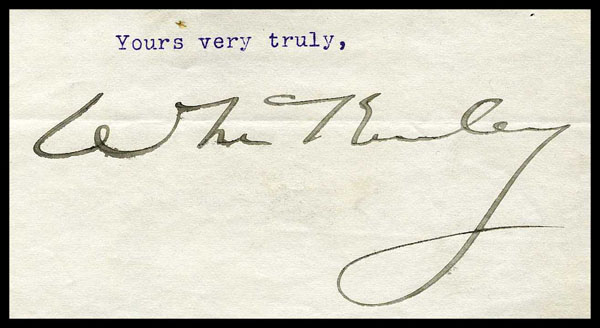 Yours very truly,
W McKinley